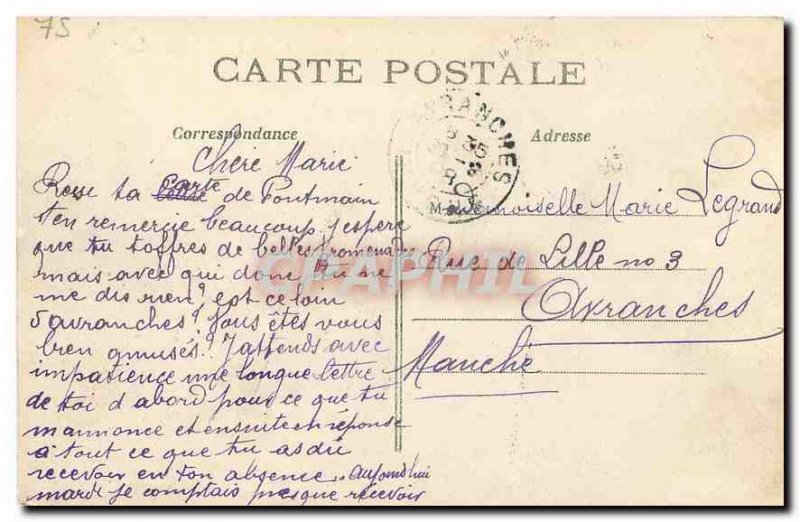 75
CARTE POSTALE
Correspondance
Adresse
AVRANCHES
Chère Marie
Reçu ta carte de Pontmain
t'en remercie beaucoup j'espère
que tu t'offres de belles promenades
mais avec qui donc tu ne
me dis rien? est ce loin
d'avranches? Vous êtes vous
bien amusés? J'attends avec
impatience une longue lettre
de toi d'abord pour ce que tu
m'annonce et ensuite en réponse
à tout ce que tu as dû
recevoir en ton absence. Aujourd'hui
mardi je comptais presque recevoir
Mademoiselle Marie Legrand
Rue de Lille no 3
Avranches
Manche
CPAPHIL